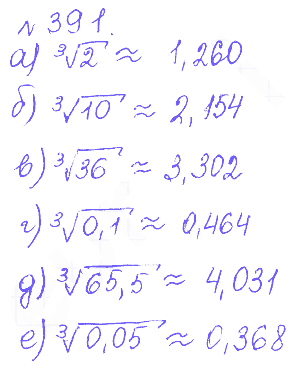 №391.
а) ∛2 ≈ 1,260
б) ∛10 ≈ 2,154
в) ∛36 ≈ 3,302
г) ∛0,1 ≈ 0,464
д) ∛65,5 ≈ 4,031
е) ∛0,05 ≈ 0,368